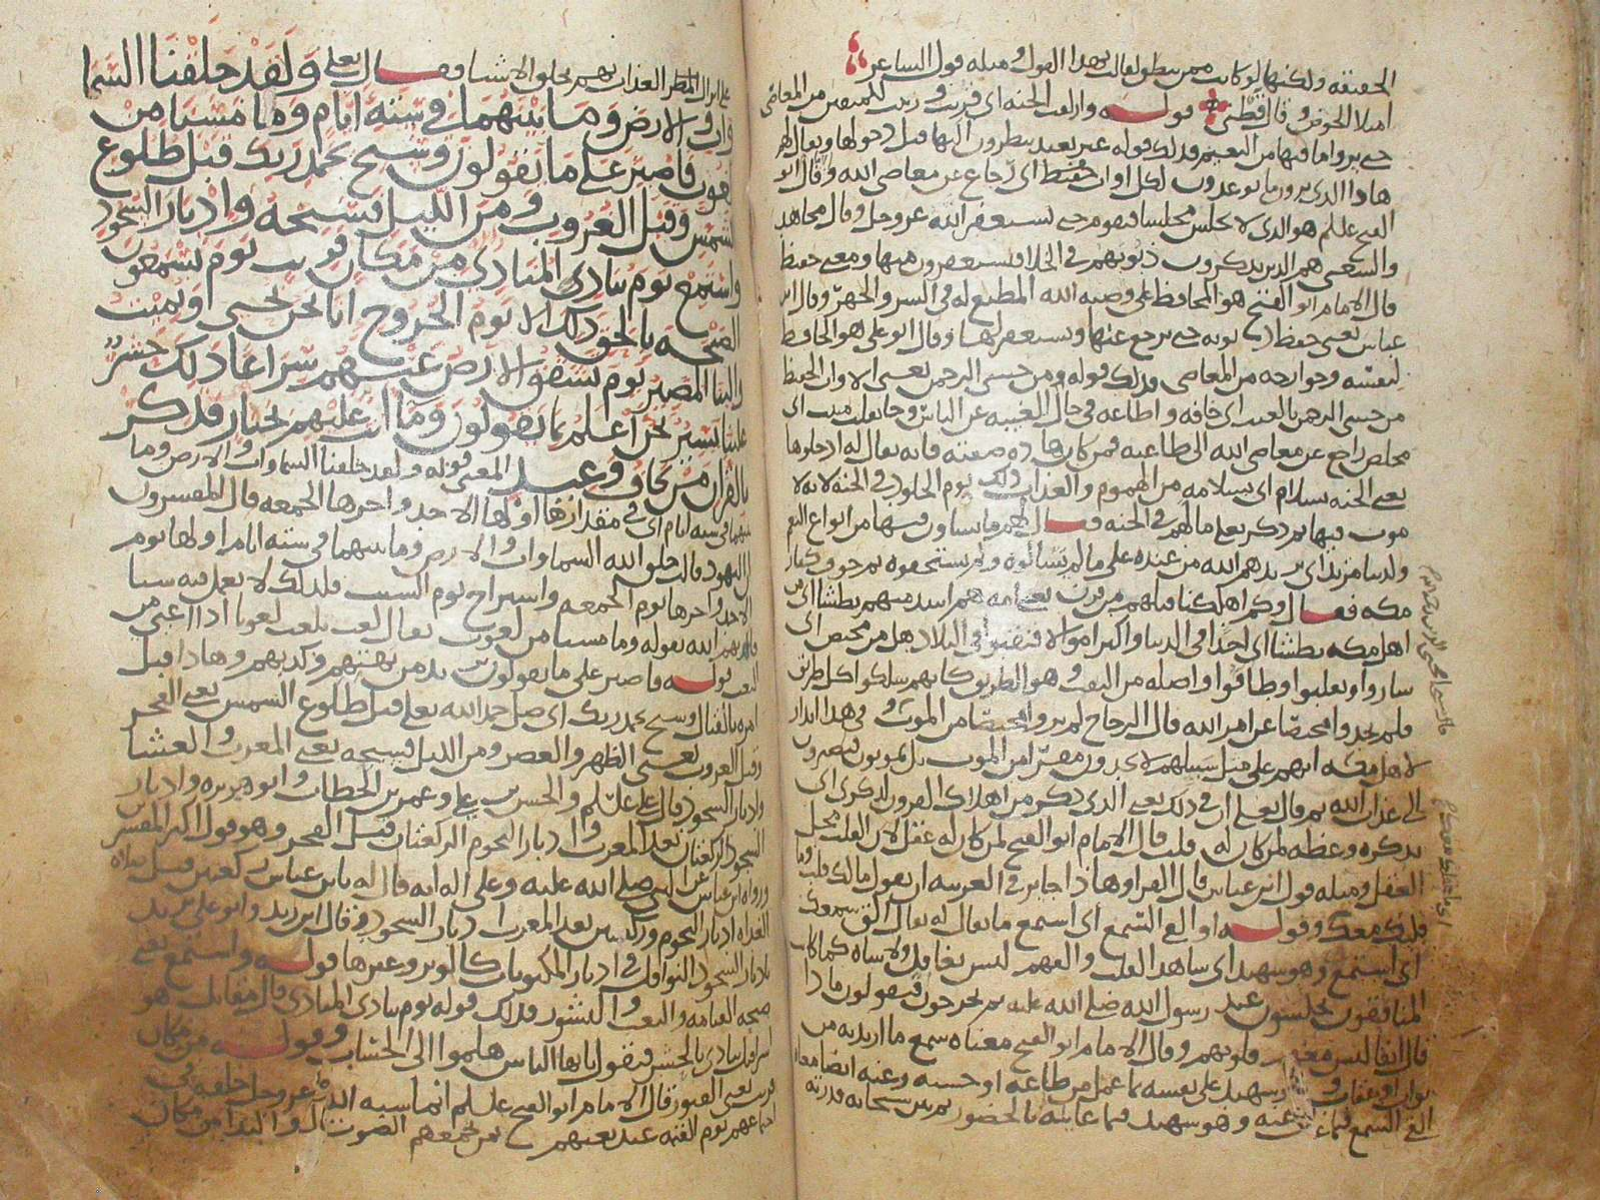 الحقيقة ولكنها لو كانت ممن ينطق لقالت بهذا القول ومثله قول الشاعر
امتلا الحوض وقال قطني قوله وازلفت الجنة اى قربت للمتقين من المعاصى
حتى يروا ما فيها من النعيم وذلك قوله غير بعيد ينظرون اليها قبل دخولها ويقال لهم
هاذا الذى توعدون لكل اواب حفيظ اى رجاع عن معاصى الله وقال ابو
الفتح علسلم هو الذى لا يجلس مجلسا فيقوم حتى يستغفر الله عز وجل وقال مجاهد
والشعبى هم الذين يذكرون ذنوبهم فى الخلا فيستغفرون منها ومعنى حفيظ
قال الامام ابو الفتح هو المحافظ على وصية الله المطيع له فى السر والجهر وقال ابن
عباس يعنى حفظ ذنوبه حتى يرجع عنها ويستغفر لها وقال ابو على هو الحافظ
لنفسه وجوارحه من المعاصى وذلك قوله ومن خشى الرحمن يعنى الاواب الحفيظ
من خشى الرحمن بالغيب اى خافه واطاعه فى حال الغيبة عن الناس وجا بقلب منيب اى
مخلص راجع عن معاصى الله الى طاعته فمن كان هاذه صفته فانه يقال له ادخلوها
يعنى الجنة بسلام اى بسلامة من الهموم والعذاب ذلك يوم الخلود فى الجنة لانه لا
موت فيها ثم ذكر تعلى ما لهم فى الجنة فقال لهم ما يشاون فيها من انواع النعم
ولدينا مزيد اى يزيدهم الله من عنده على ما لم يسالوه ولم يستحقوه ثم خوف كفار
مكة فقال وكم اهلكنا قبلهم من قرن يعنى امة هم اشد منهم بطشا اى من
اهل مكة بطشا اى اخذا فى الدنيا واكبر اموالا فنقبوا فى البلاد هل من محيص اى
ساروا وتقلبوا وطافوا واصله من النقب وهو الطريق كانهم سلكوا كل طريق
فلم يجدوا محيصا عن امر الله قال الزجاج لم يروا محيصا من الموت وفى هذا انذار
لاهل مكة انهم على مثل سبيلهم لا يجدون مفرا من الموت بل يموتون فيصيرون
الى عذاب الله ثم قال تعلى ان فى ذلك يعنى الذى ذكر من اهلاك القرون لذكرى اى
تذكرة وعظة لمن كان له قلب قال الامام ابو الفتح لمن كان له عقل لان القلب محل
العقل ومثله قول ابن عباس قال الفرا وهاذا جايز فى العربية ان يقول ما لك قلب وما
قلبك معك وقوله او القى السمع اى استمع ما يقال له يقال الق سمعك
اى استمع وهو شهيد اى شاهد القلب والفهم ليس بغافل ولا ساه كما كان
المنافقون يجلسون عند رسول الله صلى الله عليه ثم يخرجون فيقولون ماذا
قال انفا ليس معهم قلوبهم وقال الامام ابو الفتح معناه سمع ما اريد به من
ثواب او عقاب وشهيد على نفسه بما عمل من طاعة او حسنة وعنه ايضا معنا
القى السمع فيما غاب عنه وهو شهيد فيما عاينه بالحضور ثم بين سبحانه قدرته
على انزال المطر العذاب بهم بخلق الاشيا فقال تعلى ولقد خلقنا السما
وات والارض وما بينهما فى ستة ايام وما مسنا من
لغوب فاصبر على ما يقولون وسبح بحمد ربك قبل طلوع
الشمس وقبل الغروب ومن الليل فسبحه وادبار السجود
واستمع يوم ينادى المنادى من مكان قريب يوم يسمعون
الصيحة بالحق ذلك يوم الخروج انا نحن نحيى ونميت
والينا المصير يوم تشقق الارض عنهم سراعا ذلك حشر
علينا يسير نحن اعلم بما يقولون وما انت عليهم بجبار فذكر
بالقران من يخاف وعيد المعنى قوله ولقد خلقنا السماوات والارض وما
بينهما فى ستة ايام اى فى مقدارها اولها الاحد واخرها الجمعة قال المفسرون
ان اليهود قالت خلق الله السماوات والارض وما بينهما فى ستة ايام اولها يوم
الاحد واخرها يوم الجمعة واستراح يوم السبت فلذلك لا نعمل فيه شيا
فاكذبهم الله بقوله وما مسنا من لغوب يقال لغب يلغب لغوبا اذا اعيى من
التعب قوله فاصبر على ما يقولون يريد من بهتهم وكذبهم وهاذا قبل
امره بالقتال وسبح بحمد ربك اى صل حمدا لله تعلى قبل طلوع الشمس يعنى الفجر
وقبل الغروب يعنى الظهر والعصر ومن الليل فسبحه يعنى المغرب والعشا
وادبار السجود قال على علسلم والحسن بن على وعمر بن الخطاب وابو هريرة وادبار
السجود الركعتان بعد المغرب وادبار النجوم الركعتان قبل الفجر وهو قول اكثر المفسرين
ورواه ابن عباس عن النبى صلى الله عليه وعلى اله انه قال له يابن عباس ركعتين قبل صلاة
الغداة ادبار النجوم وركعتين بعد المغرب ادبار السجود وقال ابن زيد وابو على يريد
بادبار السجود النوافل فى ادبار المكتوبات كالوتر وغيرها قوله واستمع يعنى
صيحة القيامة والبعث والنشور وذلك قوله يوم ينادى المنادى قال مقاتل هو
اسرافيل ينادى بالحشر فيقول يا ايها الناس هلموا الى الحساب وقوله من مكان
قريب يعنى القبور قال الامام ابو الفتح علسلم انما شبه الله عز وجل خلقه فى
اجتماعهم يوم القيمة عند بعثهم بمن يجمعهم الصوت والندا من مكان